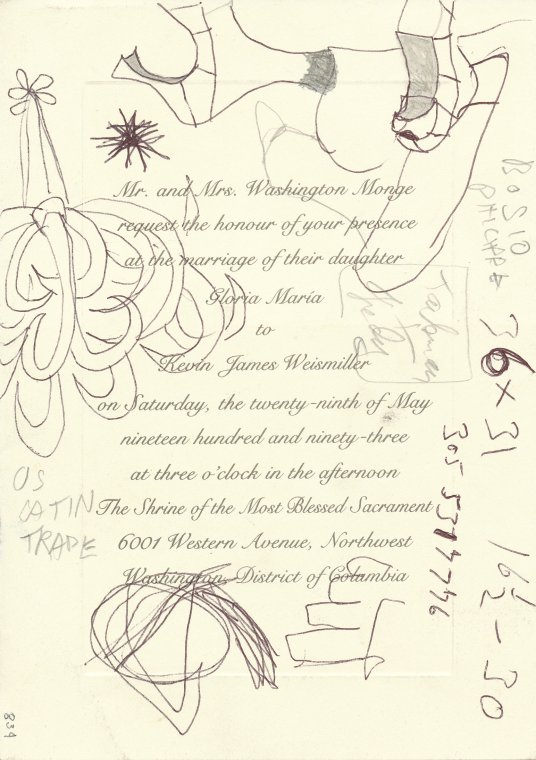 Mr. and Mrs. Washington Monge
request the honour of your presence
at the marriage of their daughter
Gloria María
to
Kevin James Weismiller
on Saturday, the twenty-ninth of May
nineteen hundred and ninety-three
at three o'clock in the afternoon
The Shrine of the Most Blessed Sacrament
6001 Western Avenue, Northwest
Washington, District of Columbia
US
LATIN
TRADE
36 x 31
16 1/2 - 30
834